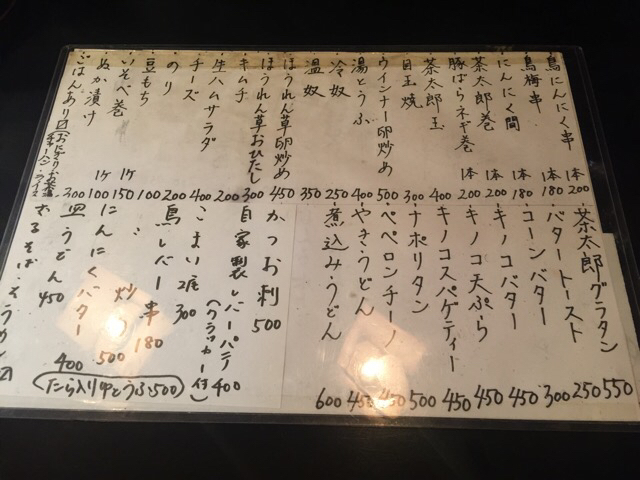 鳥にんにく串 1本200
鳥梅串 1本180
にんにく間 1本180
茶太郎巻 1本200
豚ばらネギ巻 1本200
茶太郎玉 400
目玉焼 300
ウインナー卵炒め 500
湯とうふ 400
冷奴 250
温奴 350
ほうれん草卵炒め 450
ほうれん草おひたし 300
キムチ 200
生ハムサラダ 400
チーズ
のり 200
豆もち 100
いそべ巻 1ケ150
ぬか漬け 1ケ100
ごはんあり〼 300
茶太郎グラタン 550
バタートースト 250
コーンバター 300
キノコバター 450
キノコ天ぷら 450
キノコスパゲティー 450
ナポリタン 500
ペペロンチーノ 450
やきうどん 450
煮込みうどん 600
かつお刺 500
自家製レバーパテ (クラッカー付) 400
こまい2尾 300
鳥レバー串 180
〃 炒め 500
にんにくバター 400
皿うどん 450
ざるそば
たら入り湯とうふ500